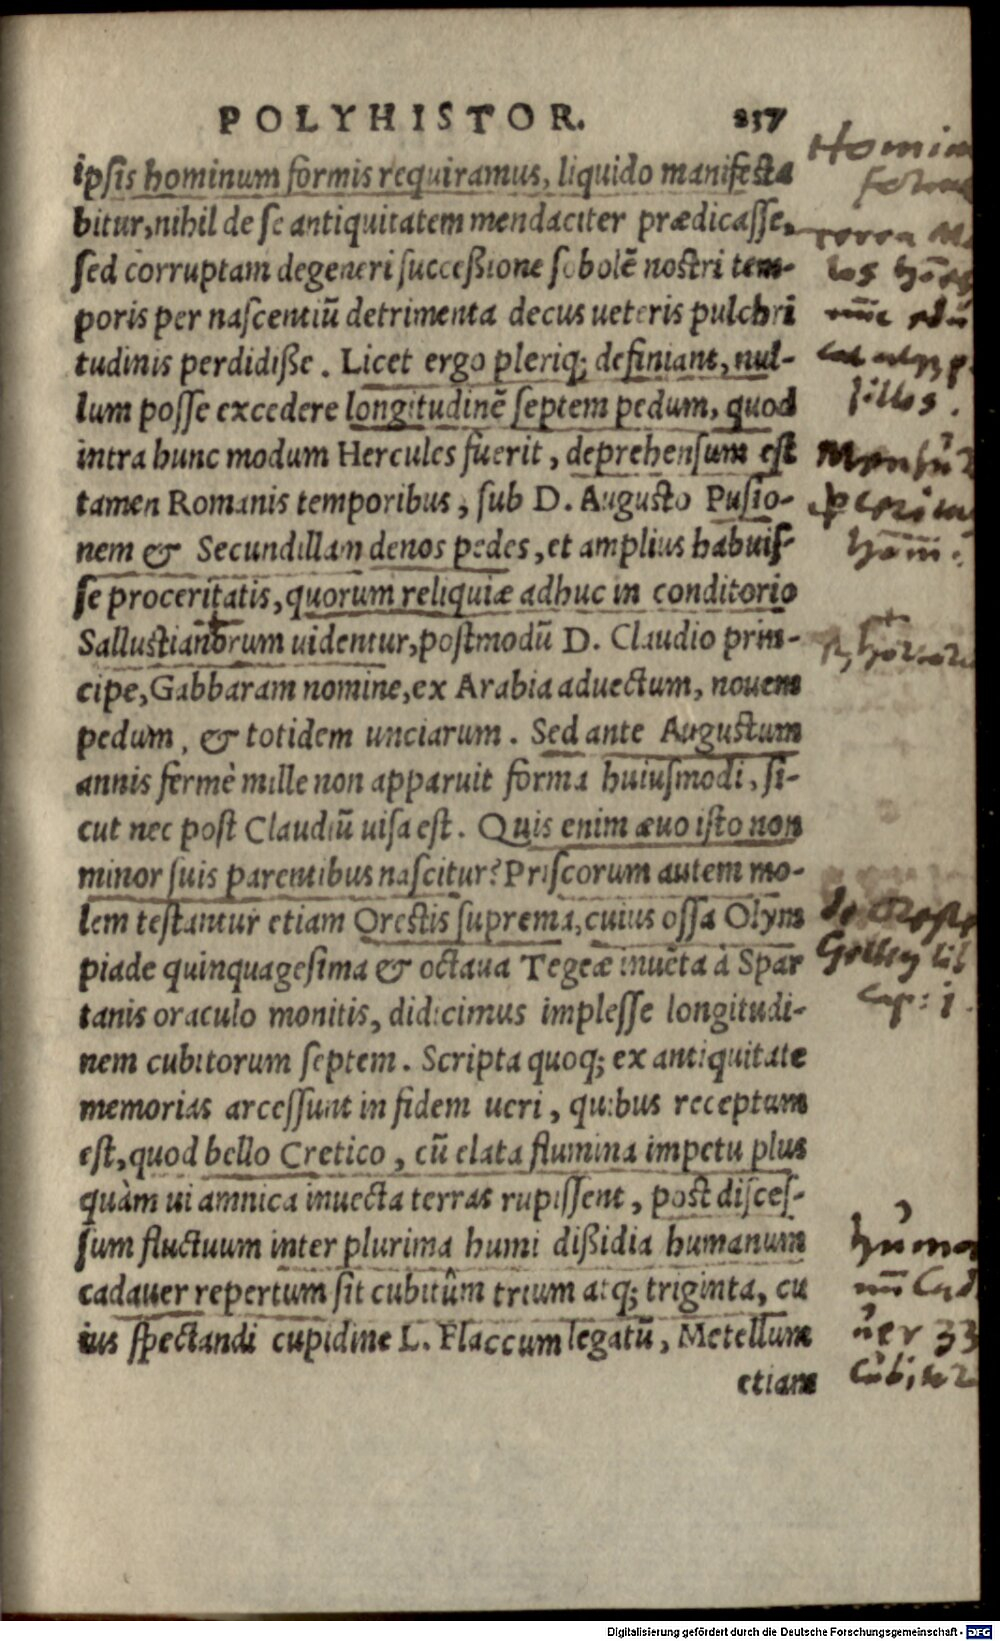 POLYHISTOR. 257
ipsis hominum formis requiramus, liquido manifesta
bitur, nihil de se antiquitatem mendaciter prædicasse,
sed corruptam degeneri succeßione sobolē nostri tem-
poris per nascentiū detrimenta decus ueteris pulchri
tudinis perdidiße. Licet ergo pleriq; definiant, nul-
lum posse excedere longitudinē septem pedum, quod
intra hunc modum Hercules fuerit, deprehensum est
tamen Romanis temporibus, sub D. Augusto Pusio-
nem & Secundillam denos pedes, et amplius habuis-
se proceritatis, quorum reliquiæ adhuc in conditorio
Sallustianorum uidentur, postmodū D. Claudio prin-
cipe, Gabbaram nomine, ex Arabia aduectum, nouem
pedum, & totidem unciarum. Sed ante Augustum
annis fermè mille non apparuit forma huiusmodi, si-
cut nec post Claudiū uisa est. Quis enim æuo isto non
minor suis parentibus nascitur? Priscorum autem mo-
lem testantur etiam Orestis suprema, cuius ossa Olym
piade quinquagesima & octaua Tegeæ inuēta à Spar
tanis oraculo monitis, didicimus implesse longitudi-
nem cubitorum septem. Scripta quoq; ex antiquitate
memorias arcessunt in fidem ueri, quibus receptum
est, quod bello Cretico, cū elata flumina impetu plus
quàm ui amnica inuecta terras rupissent, post disces-
sum fluctuum inter plurima humi dißidia humanum
cadauer repertum sit cubitûm trium atq; triginta, cu
ius spectandi cupidine L. Flaccum legatū, Metellum
etiam
Homin
cap: 1.
Digitalisierung gefördert durch die Deutsche Forschungsgemeinschaft - DFG